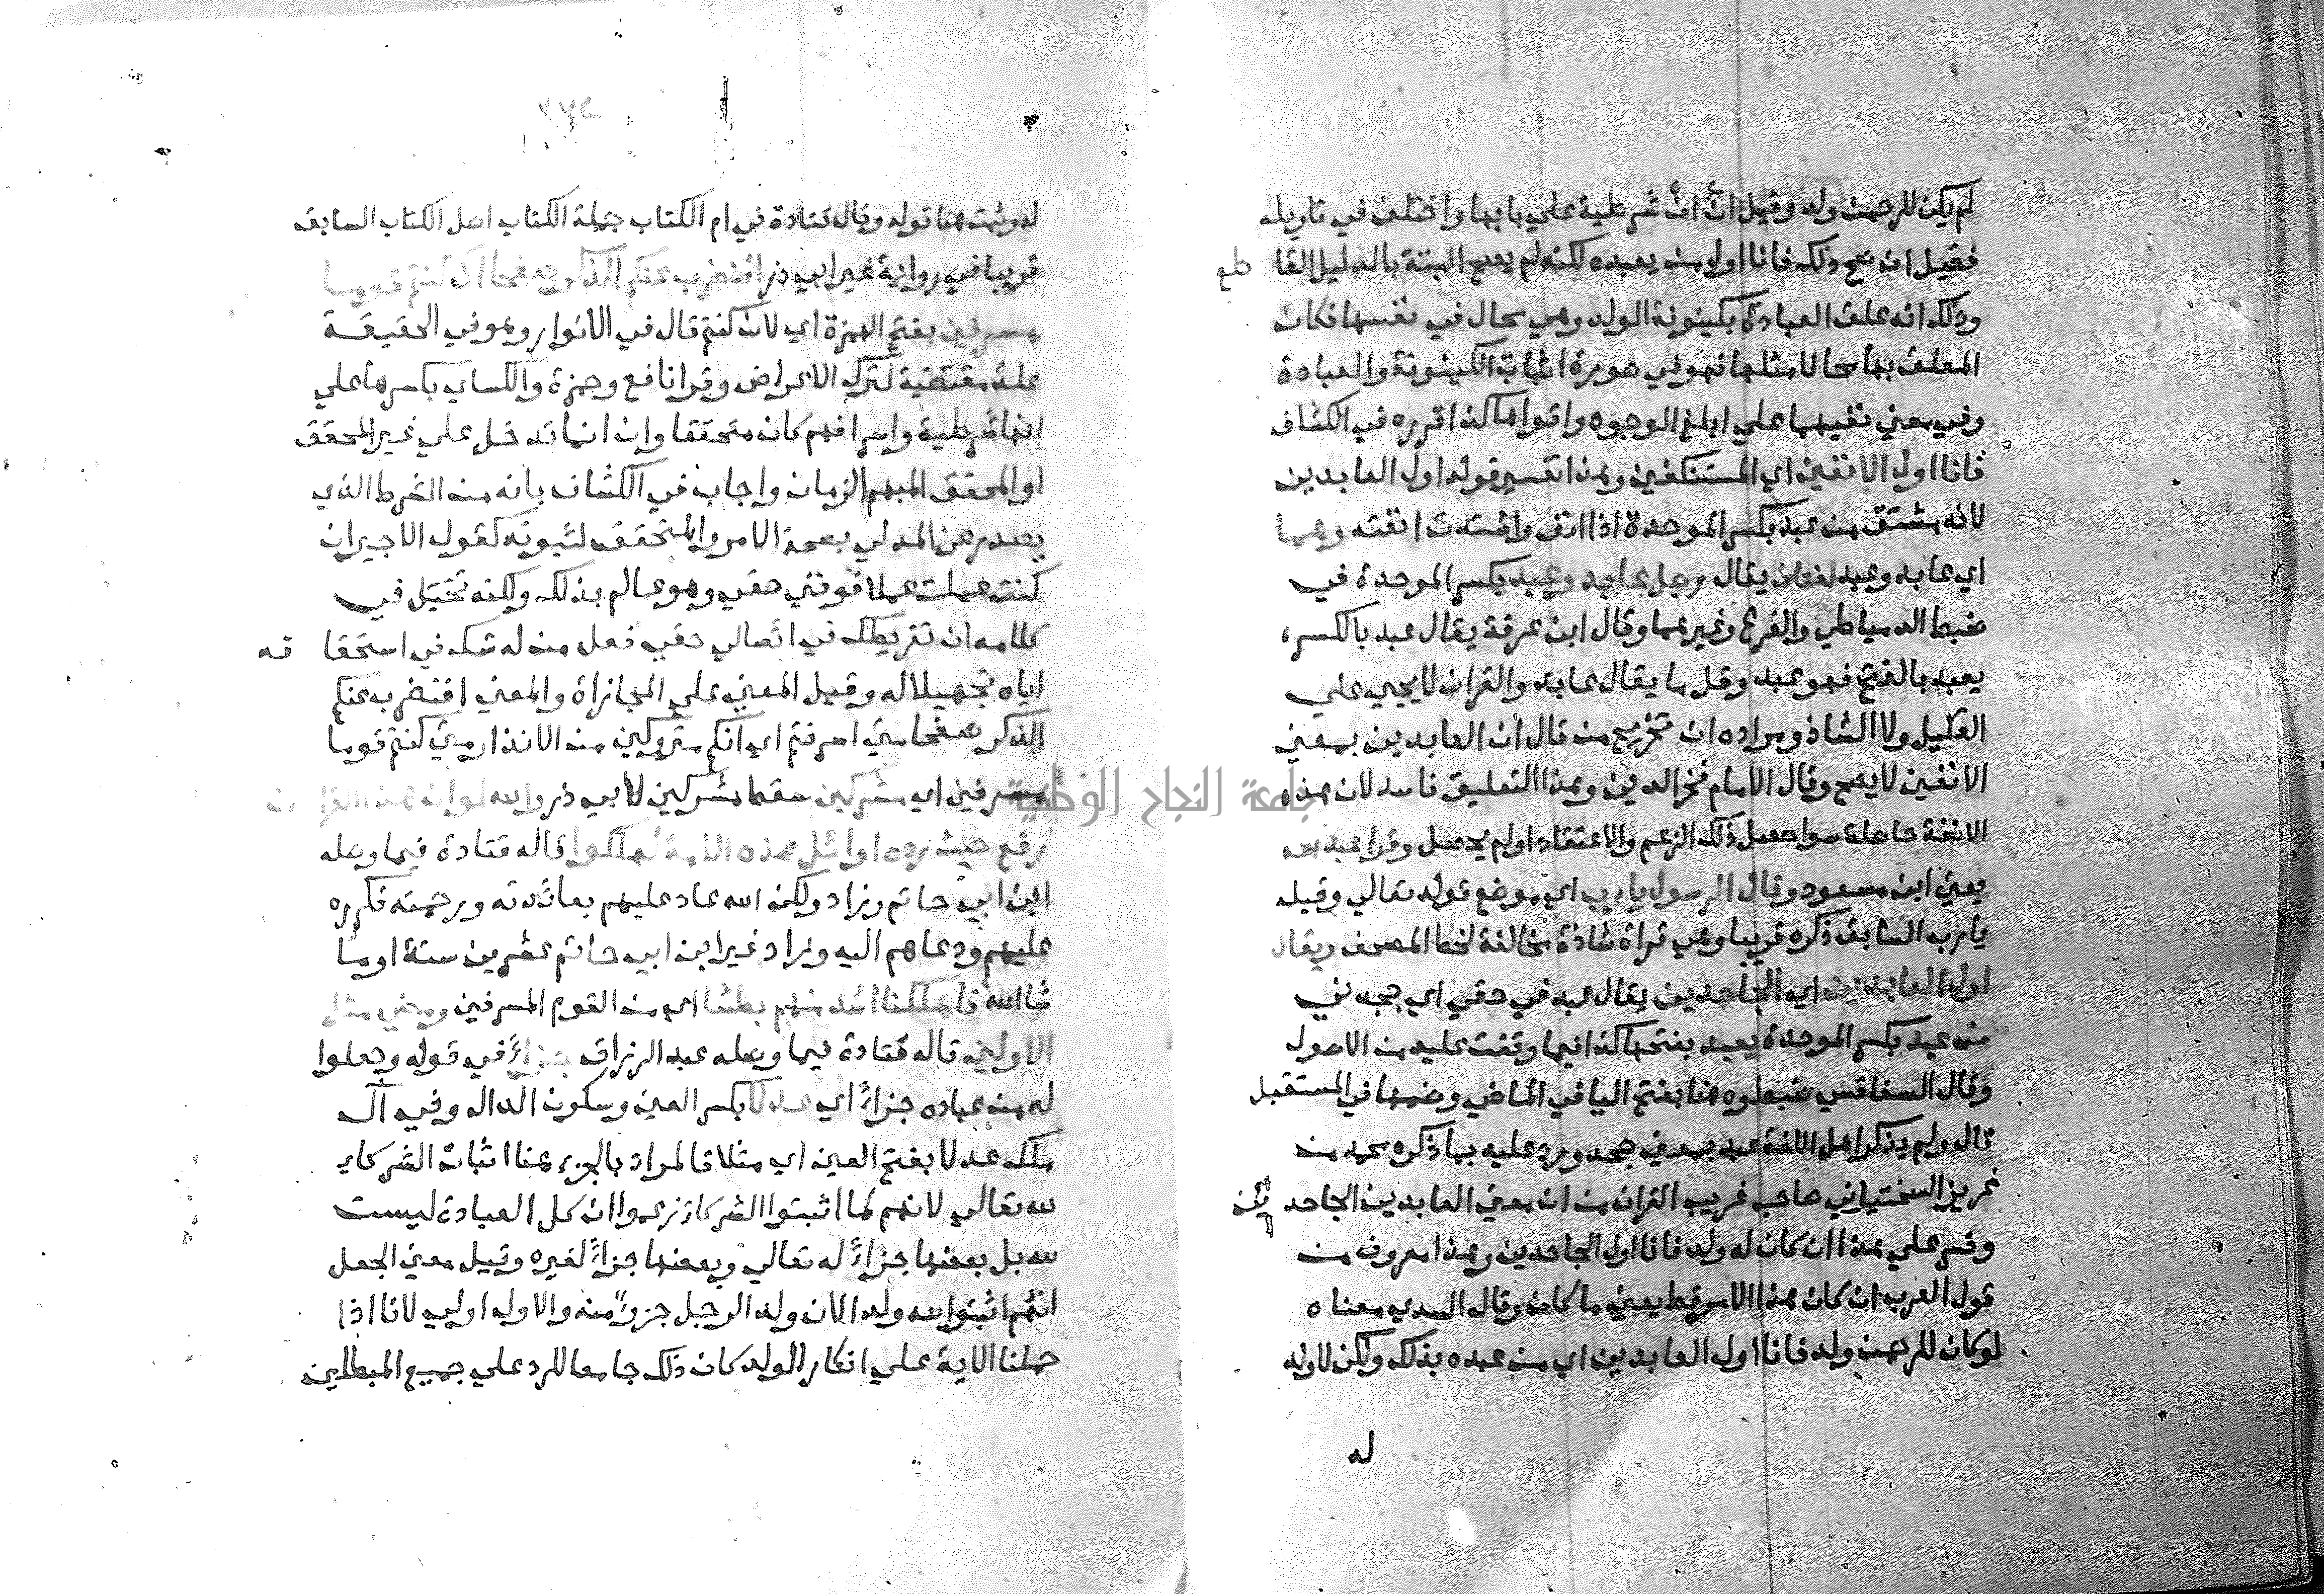 لم يكن للرحمن ولد وقيل ان ان شرطية علي بابها واختلف في تاويله
فقيل ان صح ذلك فانا اول من يعبده لكنه لم يصح البتة بالدليل القا طع
وذلك انه علق العبادة بكينونة الولد وهي محال في نفسها فكان
المعلق بها محالا مثلها فهو في صورة اثبات الكينونة والعبادة
وفي معني نفيهما علي ابلغ الوجوه واقواها كذا قرره في الكشاف
فانا اول الانفين اي المستنكفين وهذا تفسير قوله اول العابدين
لانه مشتق من عبد بكسر الموحدة اذا انف واشتدت انفته وهما
اي عابد وعبد لغتان يقال رجل عابد وعبد بكسر الموحدة في
ضبط الدمياطي والفرع وغيرهما وقال ابن عرفة يقال عبد بالكسر
يعبد بالفتح فهو عبد وقل ما يقال عابد والقران لا يجي علي
القليل ولا الشاذ ومراده ان تخريج من قال ان العابدين بمعني
الانفين لا يصح وقال الامام فخر الدين وهذا التعليق فاسد لان هذه
الانفة حاصلة سوا حصل ذلك الزعم والاعتقاد اولم يحصل وقرا عبد الله
يعني ابن مسعود وقال الرسول يارب اي موضع قوله تعالي وقيله
يارب السابق ذكره قريبا وهي قراة شاذة مخالفة لخط المصحف ويقال
اول العابدين اي الجاحدين يقال عبد في حقي اي جحدني
من عبد بكسر الموحدة يعبد بفتحها كذا فيما وقفت عليه من الاصول
وقال السفاقسي ضبطوه هنا بفتح البا في الماضي وضمها في المستقبل
قال ولم يذكر اهل اللغة عبد بمعني جحد ورد عليه بما ذكره محمد بن
عزيز السختياني صاحب غريب القران من ان معني العابدين الجاحد ين
وفسر علي هذا ان كان له ولد فانا اول الجاحدين وهذا معروف من
قول العرب ان كان هذا الامر قط يعني ما كان وقال السدي معناه
لو كان للرحمن ولد فانا اول العابدين اي من عبده بذلك ولكن لا ولد
له
له وثبت هنا قوله وقال قتادة في ام الكتاب جملة الكتاب اصل الكتاب السابق
قريبا في رواية غير ابي ذر افنضرب عنكم الذكر صفحا ان كنتم قوما
مسرفين بفتح الهمزة اي لان كنتم قال في الانوار وهو في الحقيقة
علة مقتضية لترك الاعراض وقرا نافع وحمزة والكساي بكسرها علي
انها شرطية واسرافهم كان متحققا وان انما تدخل علي غير المحقق
او المحقق المبهم الزمان واجاب في الكشاف بانه من الشرط الذي
يصدر عن المدلي بصحة الامر والمتحقق لثبوته كقول الاجير ان
كنت عملت عملا فوفني حقي وهو عالم بذلك ولكنه تخيل في
كلامه ان تفريطك في ايصالي حقي فعل من له شك في استحقا قه
اياه تجهيلا له وقيل المعني علي المجازاة والمعني افنضرب عنكم
الذكر صفحا متي اسرفتم اي انكم متروكين من الانذار متي كنتم قوما
مسرفين اي مشركين سقط مشركين لابي ذر والله لو ان هذا القران
رفع حيث رده اوائل هذه الامة لهلكوا قاله قتادة فيما وصله
ابن ابي حاتم وزاد ولكن الله عاد عليهم بعائدته ورحمته فكرره
عليهم ودعاهم اليه وزاد غير ابن ابي حاتم عشرين سنة او ما
شا الله فاهلكنا اشد منهم بطشا اي من القوم المسرفين ومضي مثل
الاولين قاله قتادة فيما وصله عبد الرزاق جزاً في قوله وجعلوا
له من عباده جزاً اي عدلا بكسر العين وسكون الدال وفي ال
ملك عدلا بفتح العين اي مثلا فالمراد بالجزء هنا اثبات الشركاء
لله تعالي لانهم لما اثبتوا الشركا زعموا ان كل العبادة ليست
لله بل بعضها جزاً له تعالي وبعضها جزاً لغيره وقيل معني الجعل
انهم اثبتوا لله ولدا لان ولد الرجل جزاً منه والاول اولي لانا اذا
حملنا الاية علي انكار الولد كان ذلك جامعا للرد علي جميع المبطلين
جامعة النجاح الوطنية